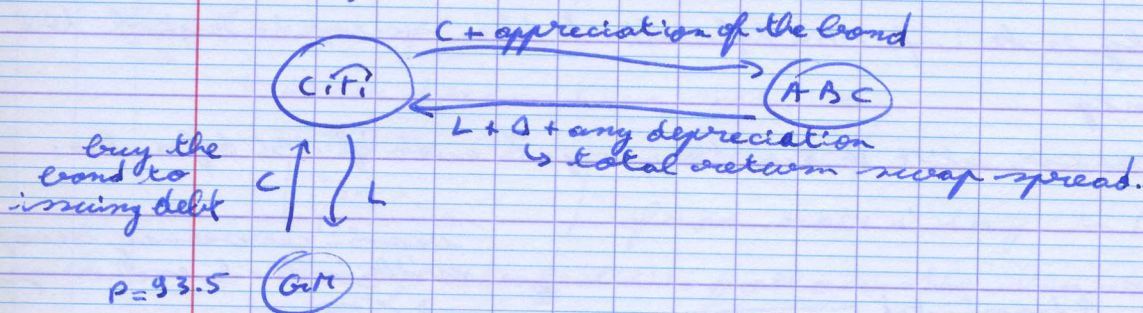 C + appreciation of the bond
Citi
ABC
L + Δ + any depreciation
↳ total return swap spread.
buy the
bond to
issuing debt
C
L
P=93.5
GM